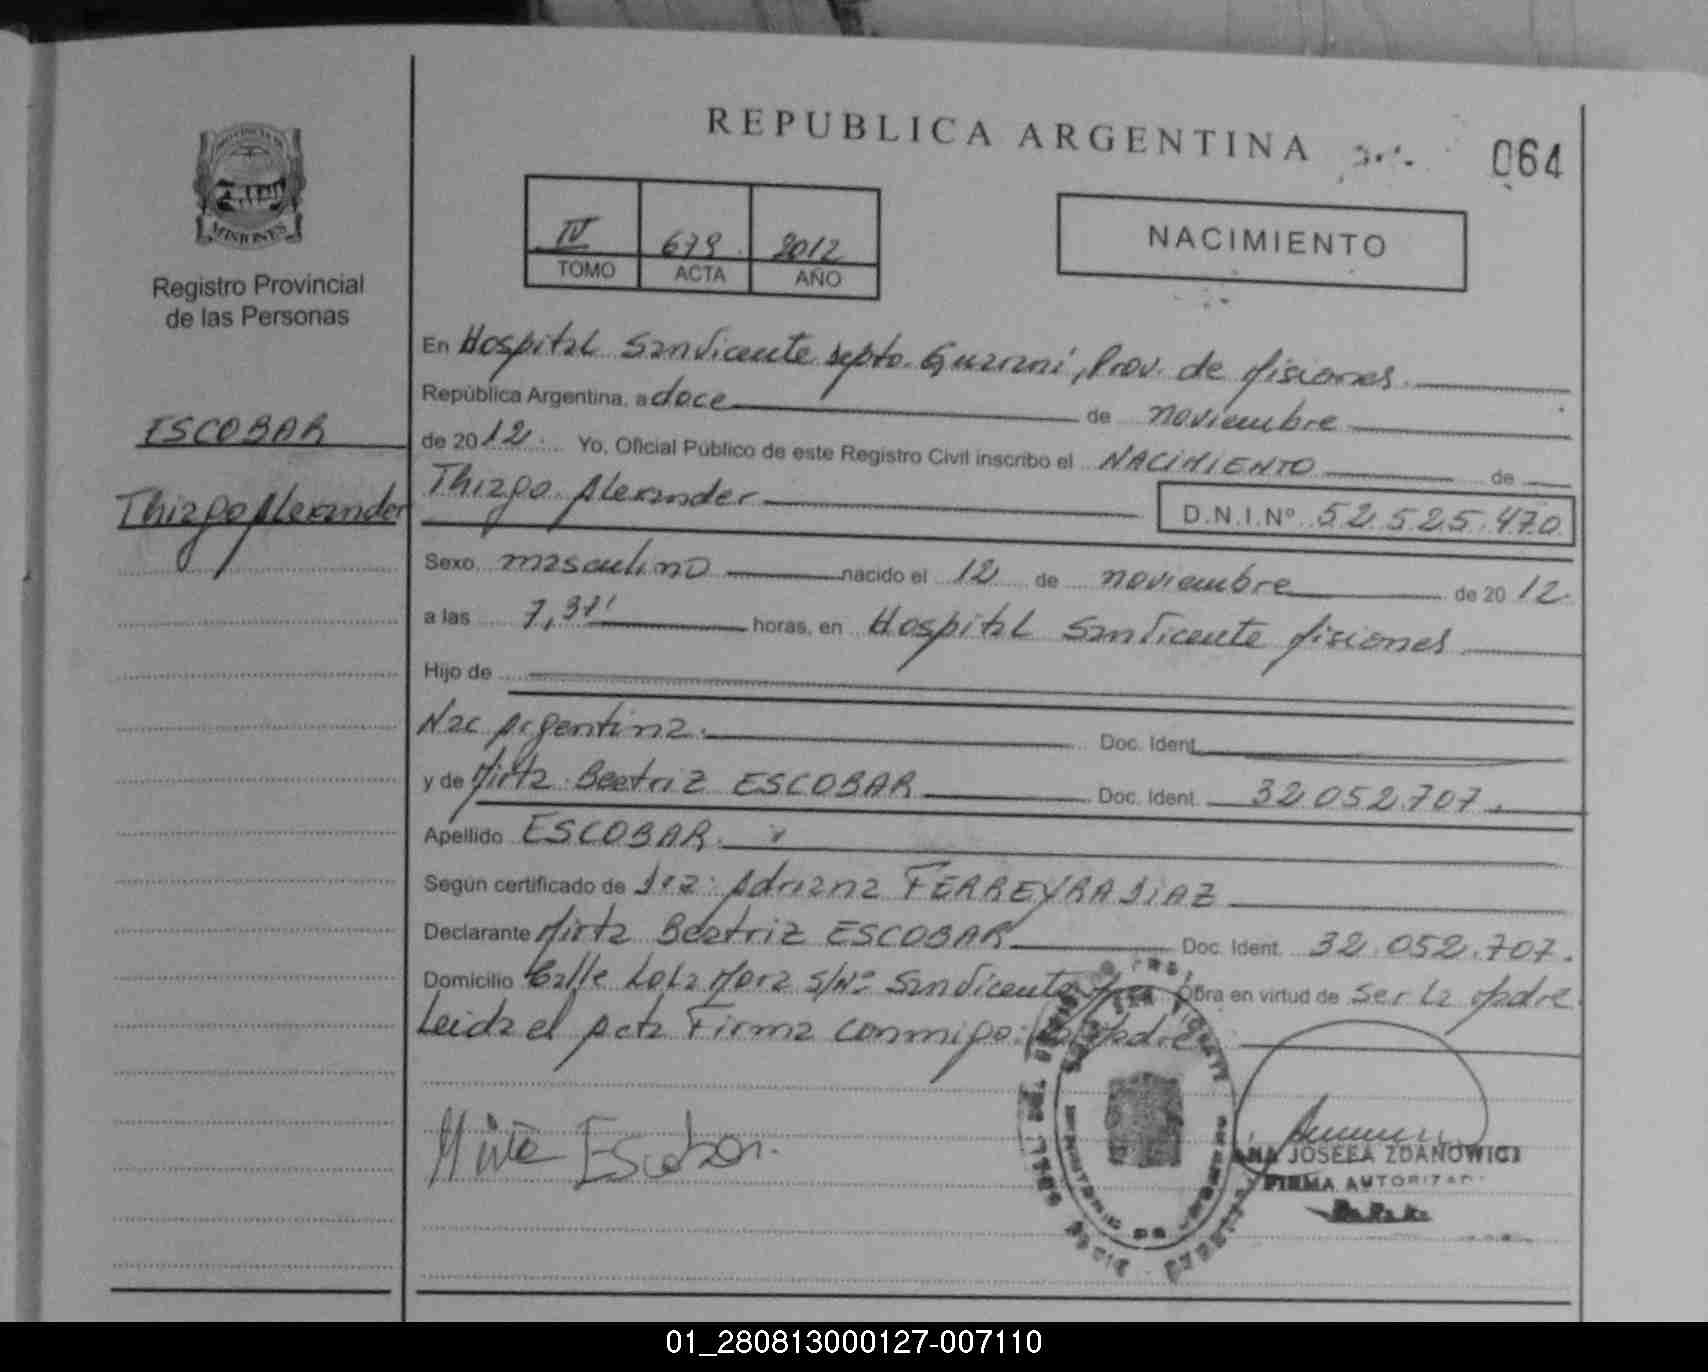 REPUBLICA ARGENTINA
064
PROVINCIA DE
MISIONES
Registro Provincial
de las Personas
IV 679 2012
TOMO ACTA AÑO
NACIMIENTO
ESCOBAR
Thiago Alexander
En Hospital San Vicente depto. Guaraní, Prov. de Misiones.
República Argentina, a doce de noviembre
de 2012. Yo, Oficial Público de este Registro Civil inscribo el NACIMIENTO de
Thiago Alexander D.N.I.Nº 52.525.470
Sexo masculino nacido el 12 de noviembre de 2012.
a las 7,37' horas, en Hospital San Vicente Misiones
Hijo de
Nac Argentina. Doc. Ident.
y de Mirta Beatriz ESCOBAR Doc. Ident. 32.052.707.
Apellido ESCOBAR.
Según certificado de Dra. Adriana FERREYRA DIAZ
Declarante Mirta Beatriz ESCOBAR Doc. Ident. 32.052.707.
Domicilio Calle Lola Mora S/Nº San Vicente Obra en virtud de ser la Madre
Leida el Acta Firma conmigo: la Madre
Mirta Escobar.
ANA JOSEFA ZDANOWICZ
FIRMA AUTORIZADA
01_280813000127-007110